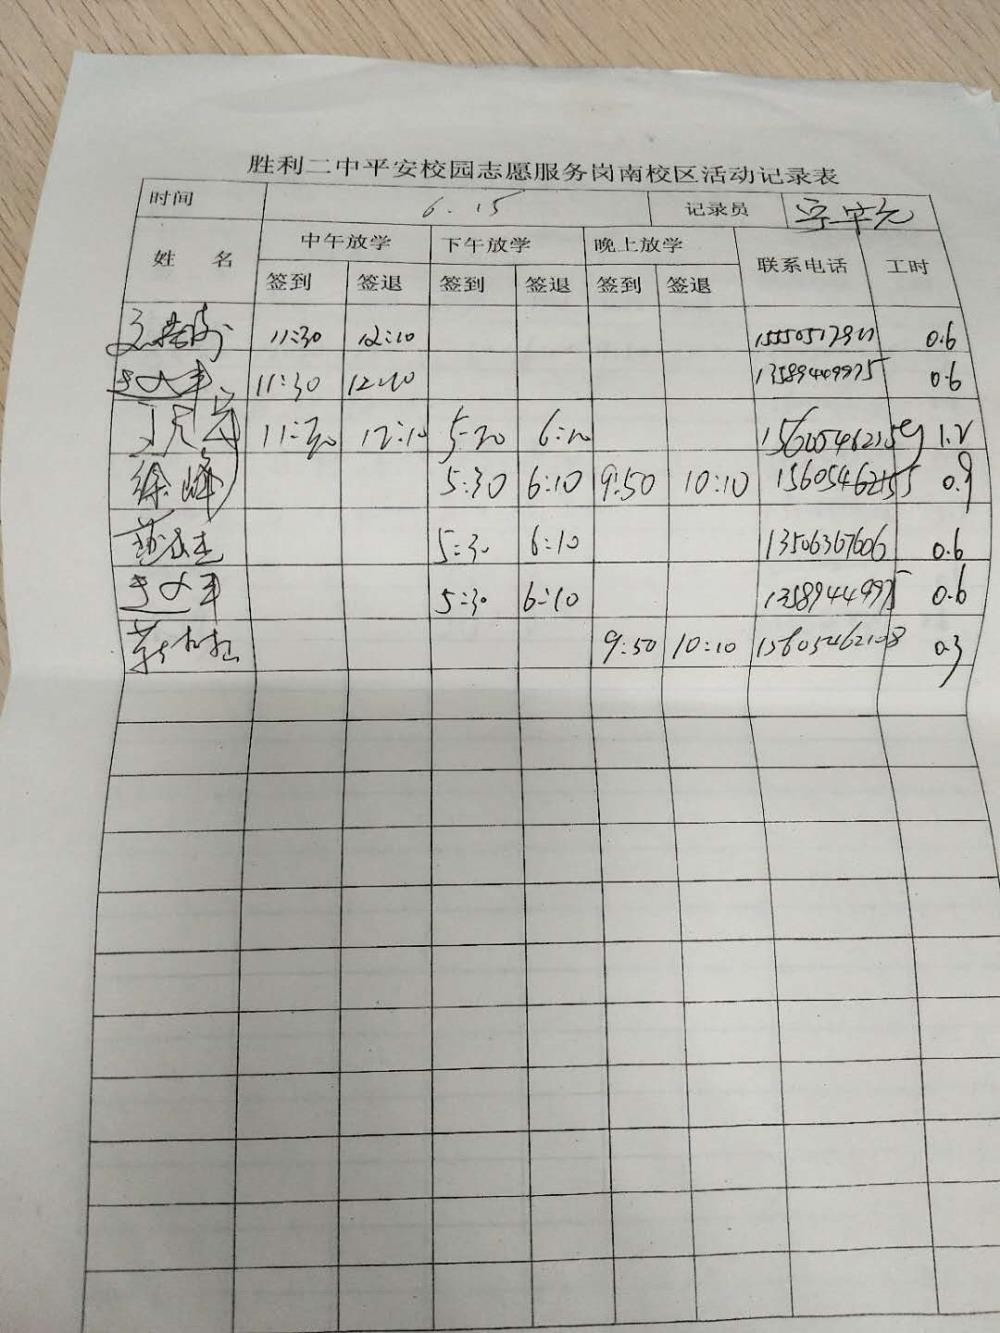 胜利二中平安校园志愿服务岗南校区活动记录表
时间 6.15 记录员
姓 名 中午放学 下午放学 晚上放学 联系电话 工时
签到 签退 签到 签退 签到 签退
11:30 12:10 0.6
11:30 12:10 13589449975 0.6
11:30 12:10 5:30 6:10 15605462159 1.2
徐峰 5:30 6:10 9:50 10:10 15605462155 0.9
5:30 6:10 13506367606 0.6
5:30 6:10 13589449975 0.6
9:50 10:10 15605462108 0.3